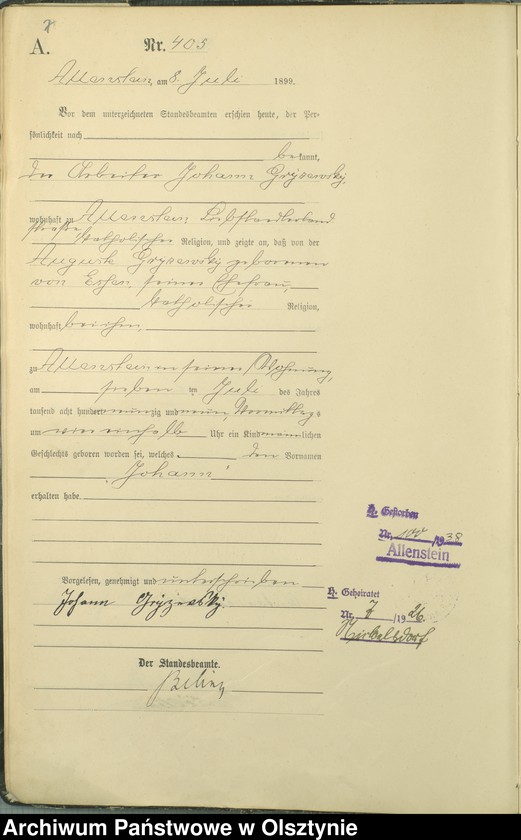 A.
Nr. 405
Allenstein, am 8. Juli 1899.
Vor dem unterzeichneten Standesbeamten erschien heute, der Per-
sönlichkeit nach
bekannt,
der Arbeiter Johann Gryzewsky,
wohnhaft in Allenstein,
straße, katholischer Religion, und zeigte an, daß von der
Auguste Gryzewsky geborenen
von Essen, seiner Ehefrau,
katholischer Religion,
wohnhaft bei ihm,
zu Allenstein in seiner Wohnung,
am sieben ten Juli des Jahres
tausend acht hundert neunzig und neun, Vormittags
um Uhr ein Kind männlichen
Geschlechts geboren worden sei, welches den Vornamen
„Johann“
erhalten habe.
Vorgelesen, genehmigt und unterschrieben
Johann Gryzewsky.
Der Standesbeamte.
h. Gestorben
Nr. 100 /1938
Allenstein
h. Geheiratet
Nr. 7 /1926.
Archiwum Państwowe w Olsztynie